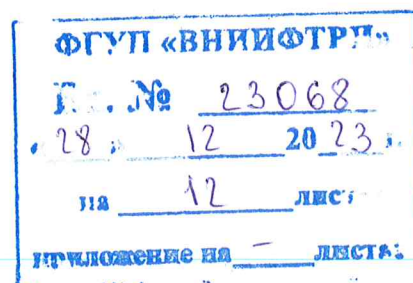 ФГУП «ВНИИФТРИ»
№ 23068
« 28 » 12 2023 г.
на 12 лист
приложение на - листах